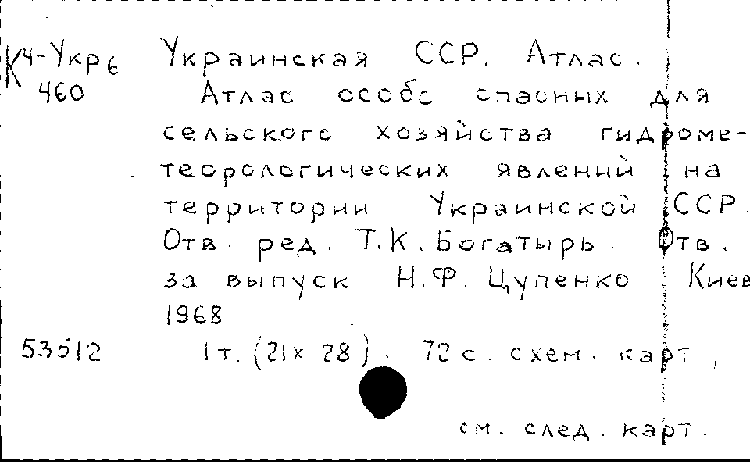 К4-Укр6 Украинская ССР. Атлас.
460 Атлас особо опасных для
сельского хозяйства гидроме-
теорологических явлений на
территории Украинской ССР.
Отв. ред. Т.К.Богатырь. Отв.
за выпуск Н.Ф. Цупенко Киев
1968
53512 1т. (21х28). 72с. схем. карт,
см. след. карт.